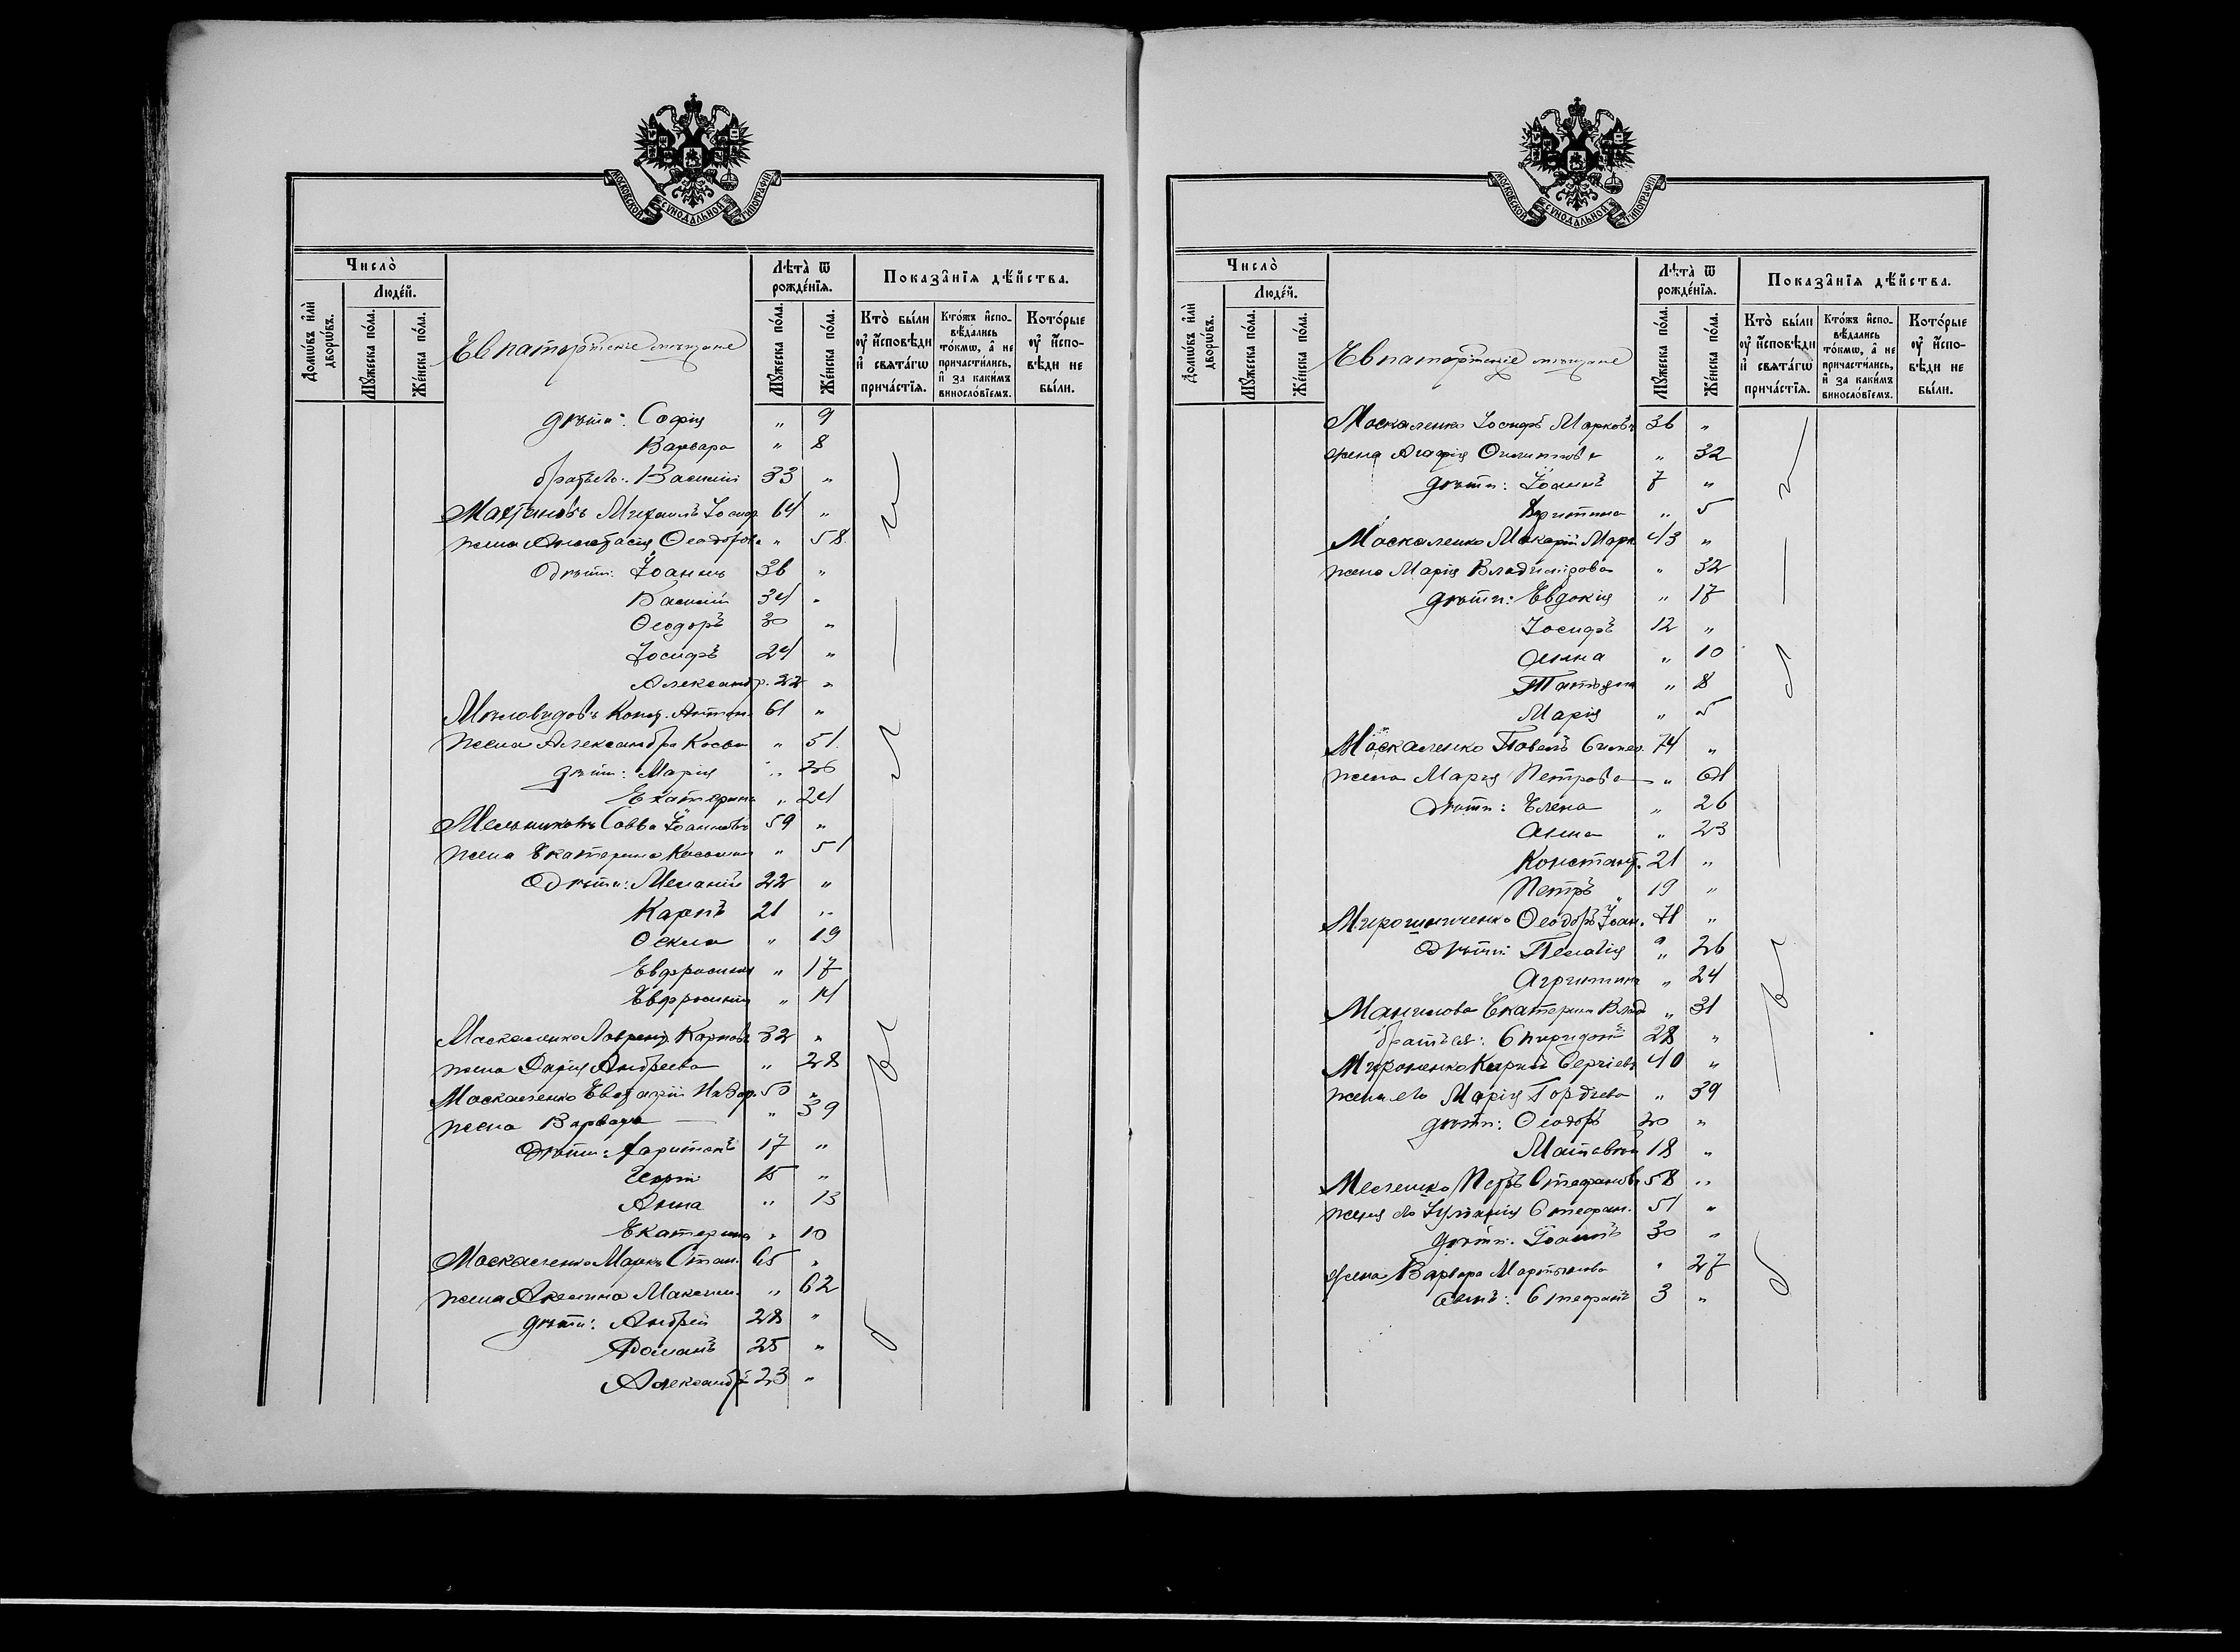 МОСКОВСКОЙ СѴНОДАЛЬНОЙ ТИПОГРАФІИ
Число̀
Людéй.
Домѡ́въ и҆лѝ дворѡ́въ.
Мꙋ́жеска по́ла.
Же́нска по́ла.
Евпаторійскіе мѣщане
Лѣта̀ ѿ рожде́нїѧ.
Мꙋ́жеска по́ла.
Же́нска по́ла.
Показа̑нїѧ дѣ́йства.
Кто̀ бы́ли
ᲂу҆ и҆сповѣ́ди
и҆ свѧта́гѡ
прича́стїѧ.
Кто́жъ и҆спо-
вѣ́дались
то́кмѡ, а҆ не
причасти́лись,
и҆ за каки́мъ
винословїемъ.
Кото́рые
ᲂу҆ и҆спо-
вѣди не
бы́ли.
дѣти: Софія " 9
Варвара " 8
братъ его: Василій 33 "
Михаилъ Іосиф. 64 "
жена Анастасія Ѳеодоров. " 58
дѣти: Іоаннъ 36 "
Василій 34 "
Ѳеодоръ 30 "
Іосифъ 24 "
Александр. 22 "
Миловидовъ Конст. Антон. 61 "
жена Александра Косьм " 51
дѣти: Марія " 26
Екатерина " 24
Мельниковъ Савва Іоанновъ 59 "
жена Екатерина " 51
дѣти: 22 "
Карпъ 21 "
Ѳекла " 19
Евфросинія " 17
Евфросинія " 14
Маскаленко Лаврент. Карповъ 32 "
жена Дарія Андреева " 28
Маскаленко Евстафій 50 "
жена Варвара — " 39
дѣти: Харитонъ 17 "
15 "
Анна " 13
Екатерина " 10
Москаленко Маркъ Стан. 65 "
жена Акилина Максим. " 62
дѣти: Андрей 28 "
Романъ 25 "
Александръ 23 "
МОСКОВСКОЙ СѴНОДАЛЬНОЙ ТИПОГРАФІИ
Число̀
Людéй.
Домѡ́въ и҆лѝ дворѡ́въ.
Мꙋ́жеска по́ла.
Же́нска по́ла.
Евпаторійскіе мѣщане
Лѣта̀ ѿ рожде́нїѧ.
Мꙋ́жеска по́ла.
Же́нска по́ла.
Показа̑нїѧ дѣ́йства.
Кто̀ бы́ли
ᲂу҆ и҆сповѣ́ди
и҆ свѧта́гѡ
прича́стїѧ.
Кто́жъ и҆спо-
вѣ́дались
то́кмѡ, а҆ не
причасти́лись,
и҆ за каки́мъ
винословїемъ.
Кото́рые
ᲂу҆ и҆спо-
вѣди не
бы́ли.
Москаленко Іосифъ Марковъ 36 "
жена Агафія " 32
дѣти: Іоаннъ 7 "
Христина " 5
Маскаленко Макарій Марк 43 "
жена Марія Владимірова " 32
дѣти: Евдокія " 17
Іосифъ 12 "
Анна " 10
Татьяна " 8
Марія " 5
Маскаленко Павелъ Симео. 74 "
жена Марія Петрова — " 64
дѣти: Елена " 26
Анна " 23
Констант. 21 "
Петръ 19 "
Мирошниченко Ѳеодоръ Іоан. 71 "
дѣти: Пелагія " 26
Агриппина " 24
Екатерина Влад " 31
братъ ея: Спиридонъ 28 "
Мироненко Кирилъ Сергіевъ 40 "
жена его Марія Гордѣева " 39
дѣти: Ѳеодоръ 20 "
Матѳей 18 "
Мелешко Петръ Стефановъ 58 "
жена его Іуліанія Стефан. 51 "
дѣти: Іоаннъ 30 "
жена Варвара Мартынова " 27
сынъ: Стефанъ 3 "